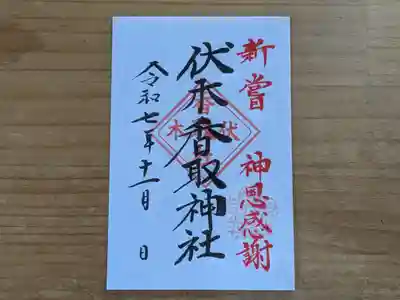 新嘗 神恩感謝
伏木香取神社
令和七年十一月 日